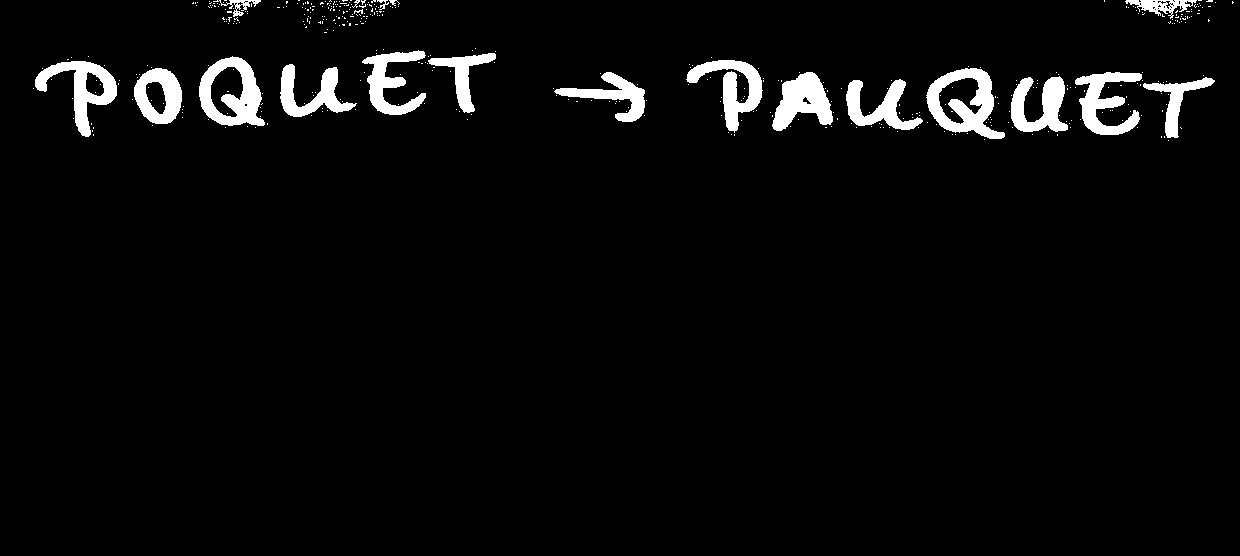 POQUET → PAUQUET